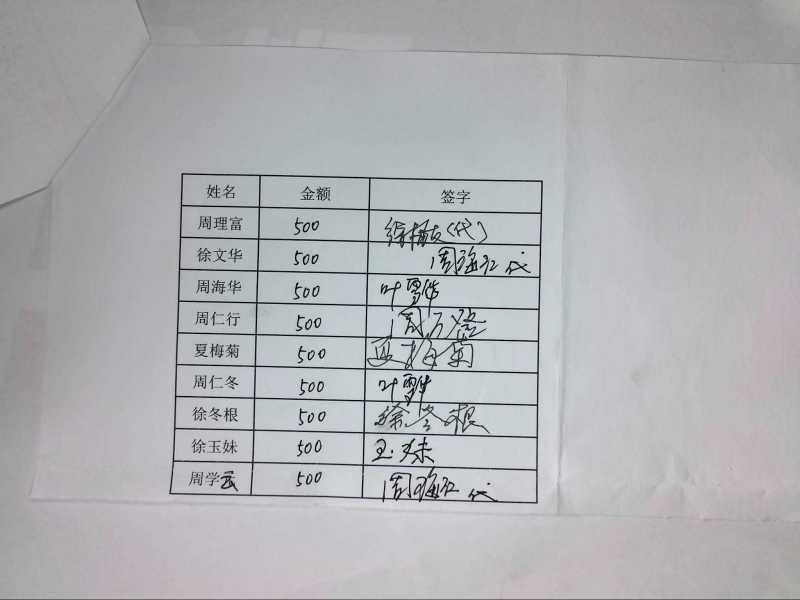 姓名 金额 签字
周理富 500 (代)
徐文华 500 周海红 代
周海华 500 叶雪华
周仁行 500 周万
夏梅菊 500 夏梅菊
周仁冬 500 叶雪华
徐冬根 500 徐冬根
徐玉妹 500 玉妹
周学云 500 周海红 代